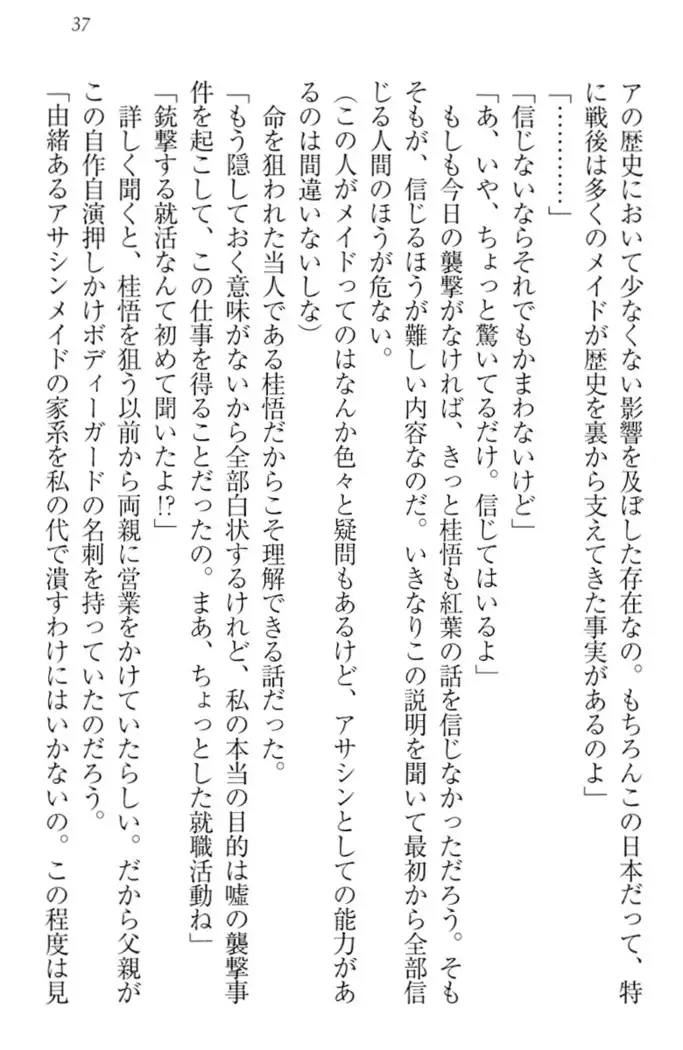 37
アの歴史において少なくない影響を及ぼした存在なの。もちろんこの日本だって、特
に戦後は多くのメイドが歴史を裏から支えてきた事実があるのよ」
「…………」
「信じないならそれでもかまわないけど」
「あ、いや、ちょっと驚いてるだけ。信じてはいるよ」
もしも今日の襲撃がなければ、きっと桂悟も紅葉の話を信じなかっただろう。そも
そもが、信じるほうが難しい内容なのだ。いきなりこの説明を聞いて最初から全部信
じる人間のほうが危ない。
（この人がメイドってのはなんか色々と疑問もあるけど、アサシンとしての能力があ
るのは間違いないしな）
命を狙われた当人である桂悟だからこそ理解できる話だった。
「もう隠しておく意味がないから全部白状するけれど、私の本当の目的は嘘の襲撃事
件を起こして、この仕事を得ることだったの。まあ、ちょっとした就職活動ね」
「銃撃する就活なんて初めて聞いたよ!?」
詳しく聞くと、桂悟を狙う以前から両親に営業をかけていたらしい。だから父親が
この自作自演押しかけボディーガードの名刺を持っていたのだろう。
「由緒あるアサシンメイドの家系を私の代で潰すわけにはいかないの。この程度は見